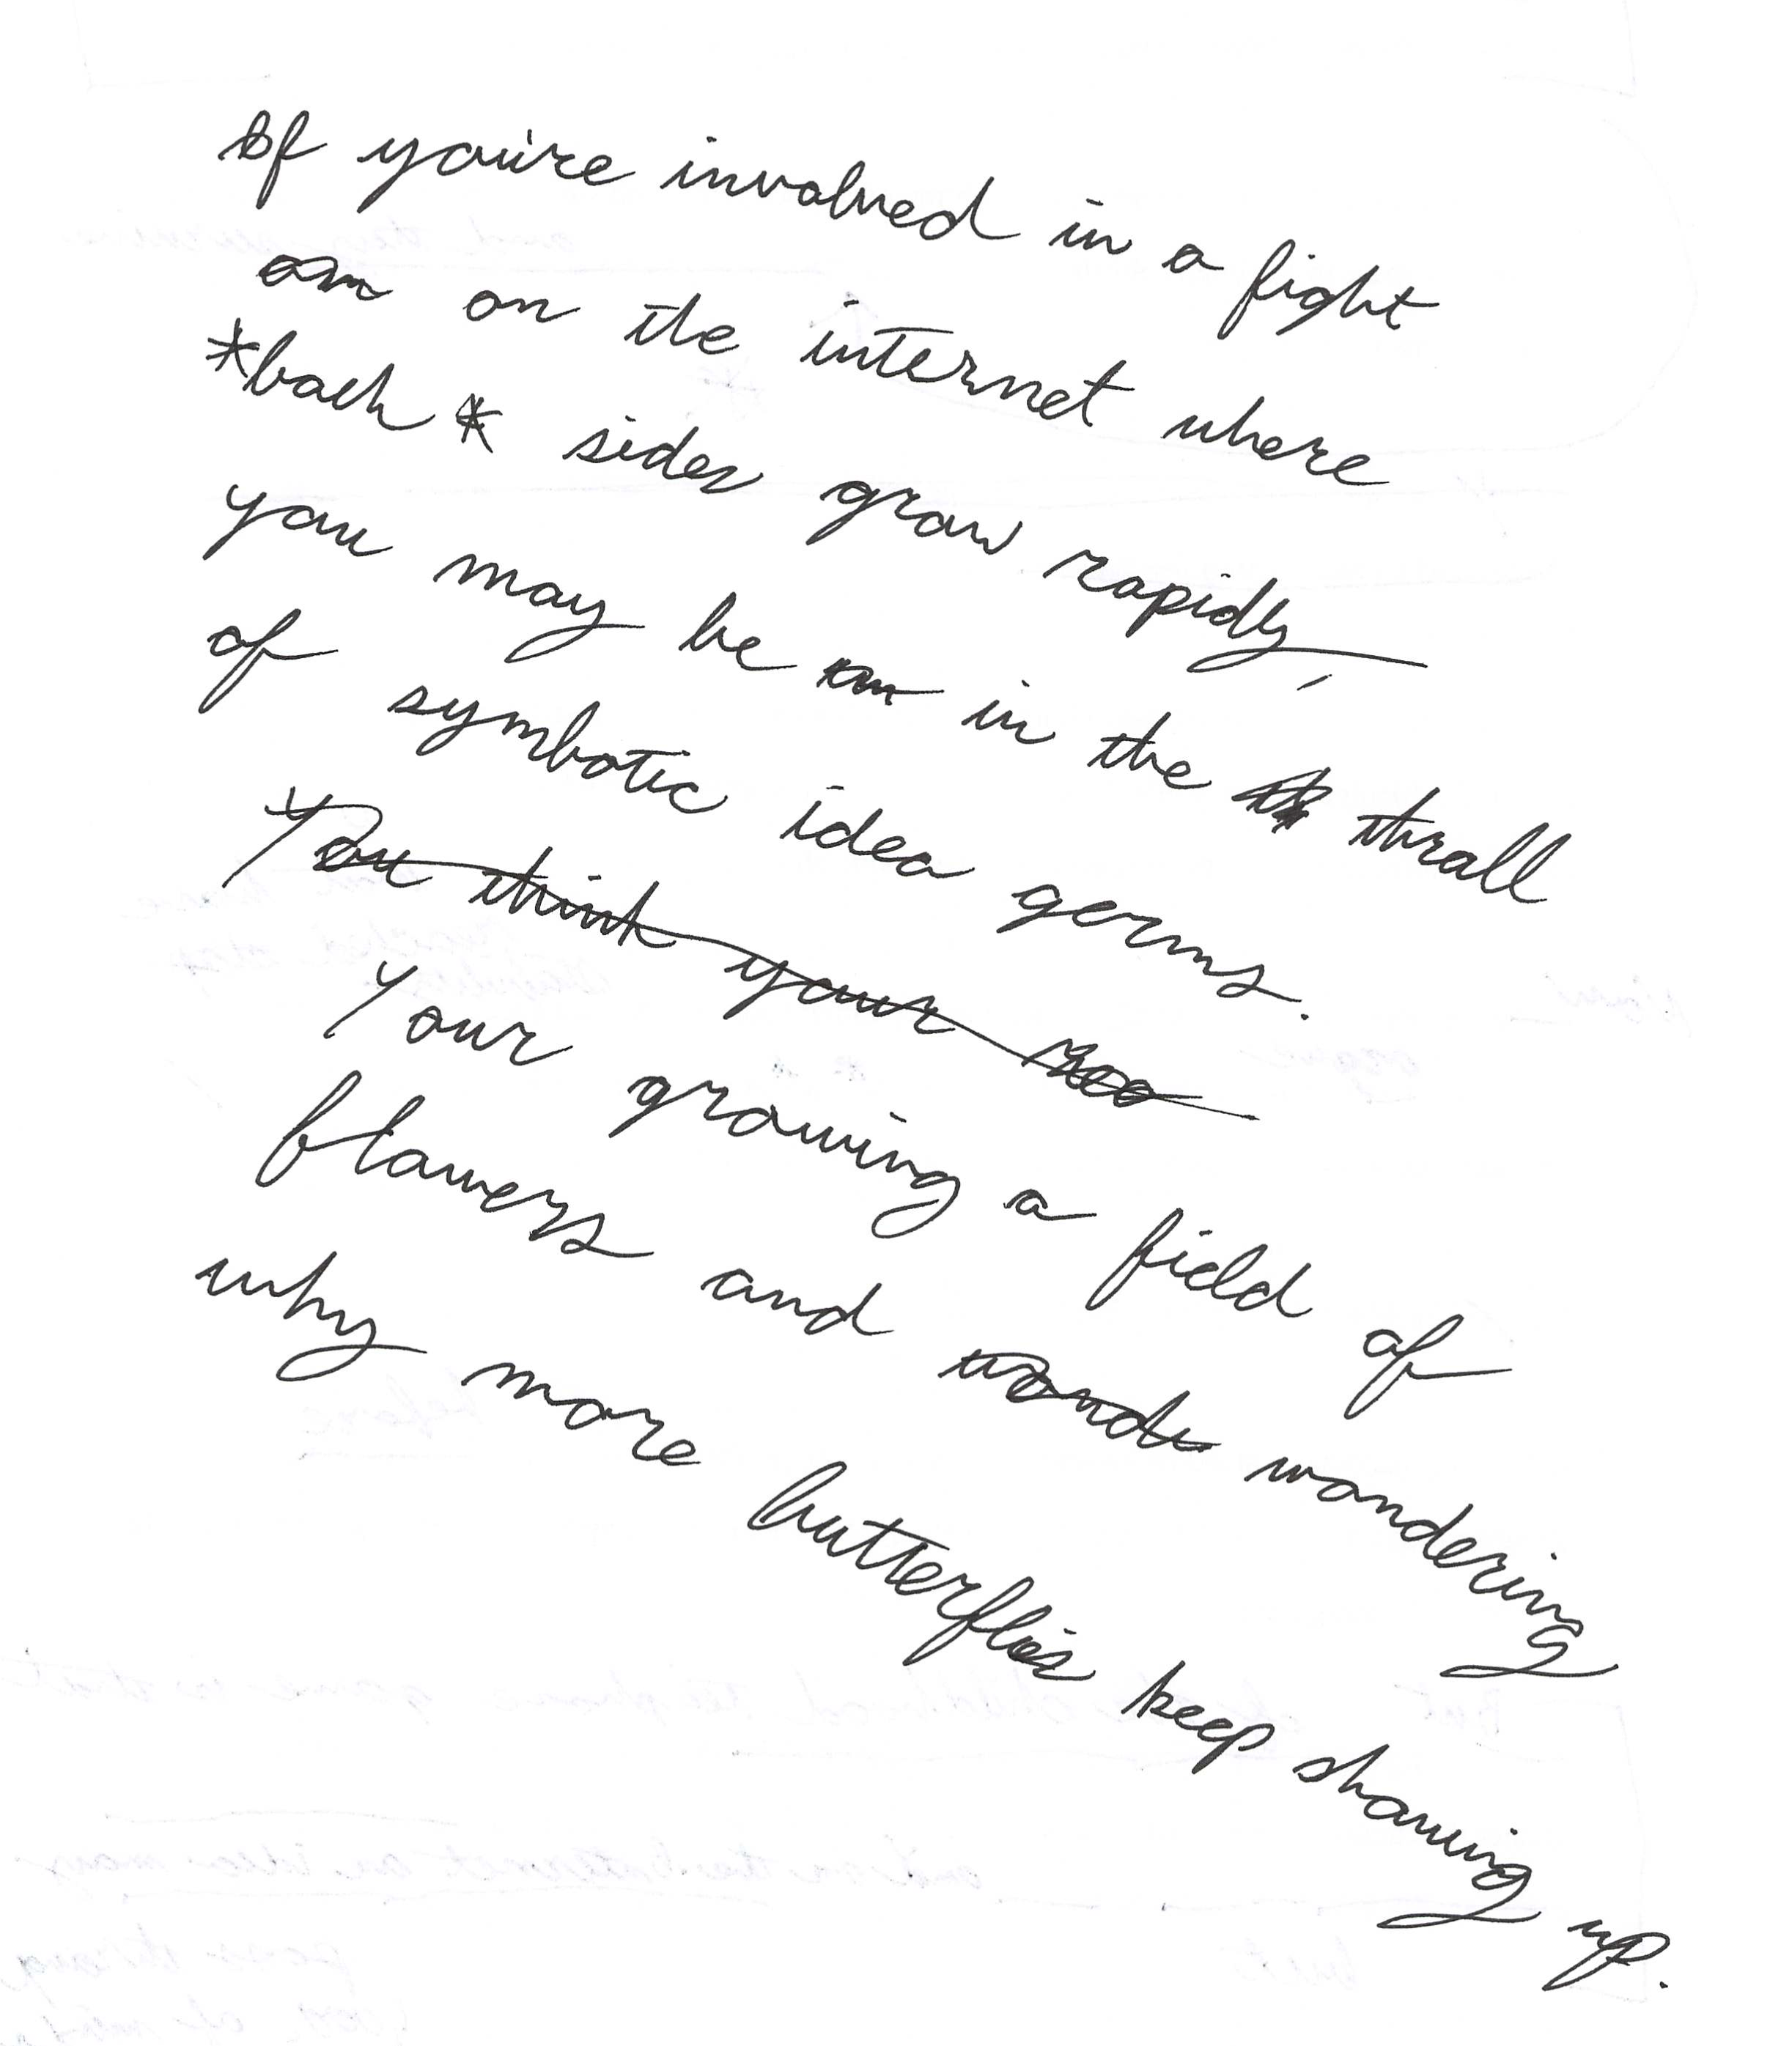 If you're involved in a fight
on the internet where
*both* sides grow rapidly,
you may be in the thrall
of symbotic idea germs.
You think your
Your growing a field of
flowers and wondering
why more butterflies keep showing up.